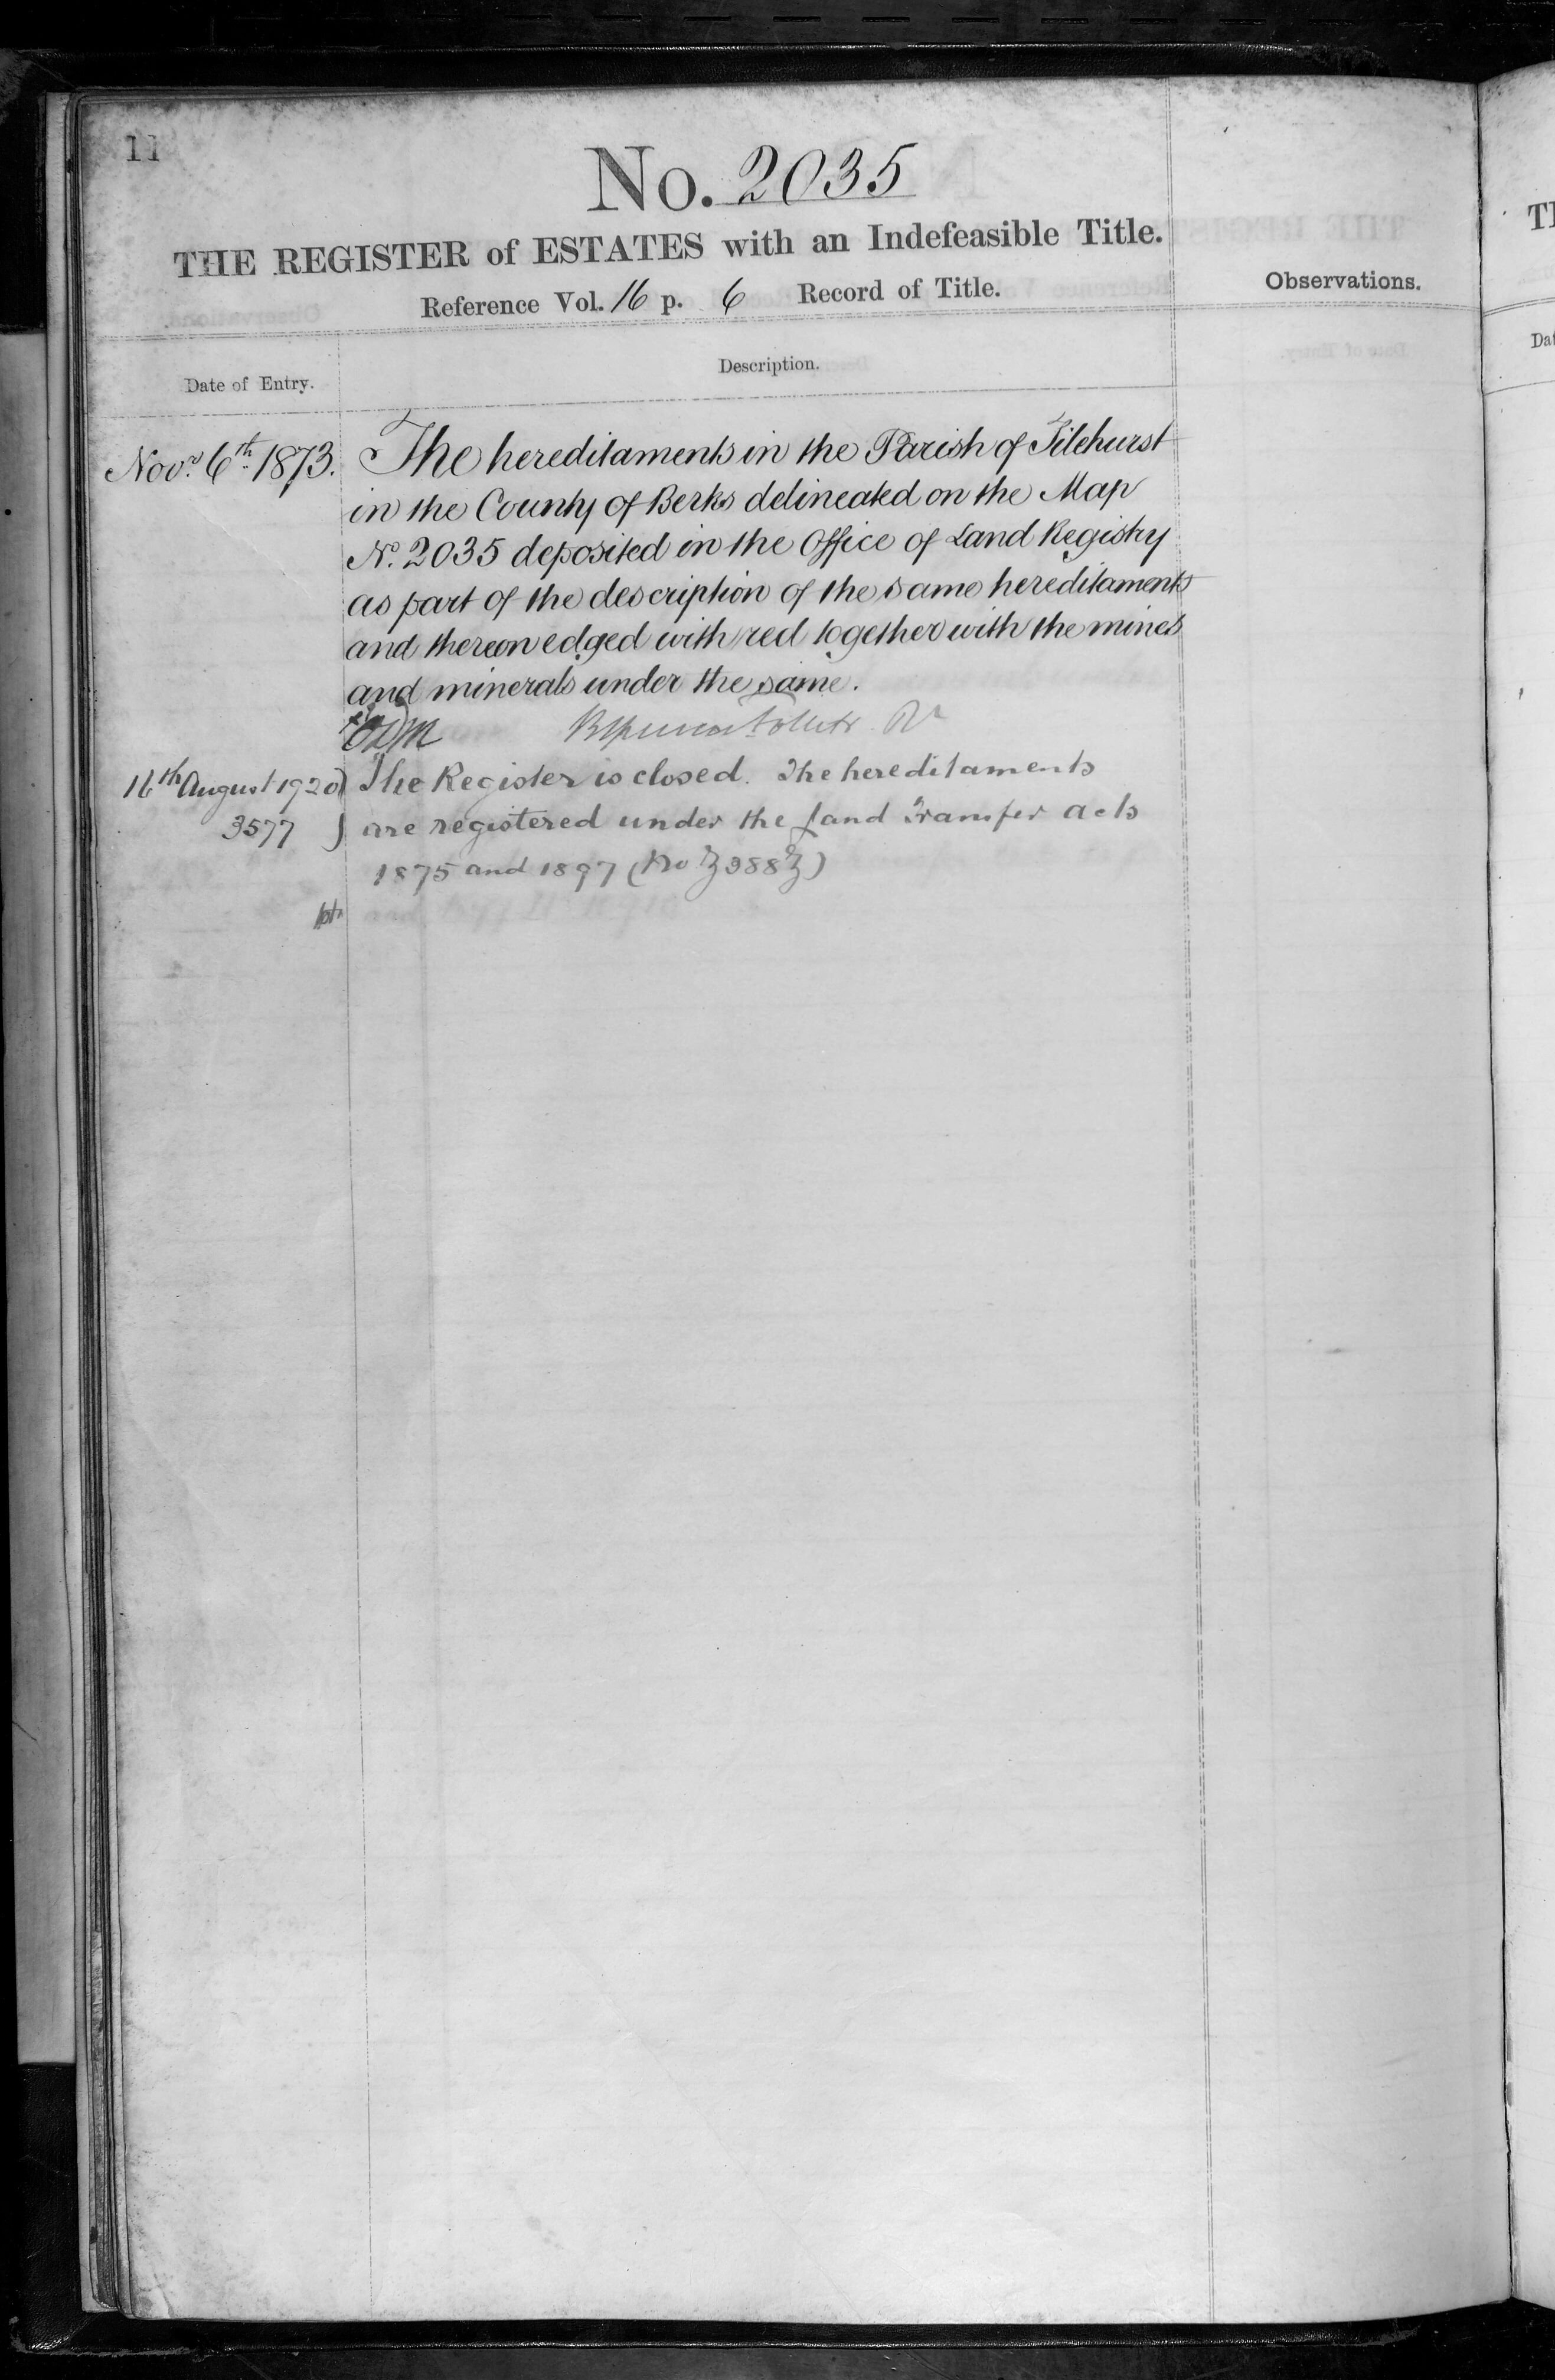 11
No. 2035
THE REGISTER of ESTATES with an Indefeasible Title.
Reference Vol. 16 p. 6 Record of Title.
Observations.
Date of Entry.
Description.
Novr. 6th. 1873.
The hereditaments in the Parish of Tilehurst
in the County of Berks delineated on the Map
No. 2035 deposited in the Office of Land Registry
as part of the description of the same hereditaments
and thereon edged with red together with the mines
and minerals under the same.
16th August 1920
3577
The Register is closed. The hereditaments
are registered under the Land Transfer Acts
1875 and 1897